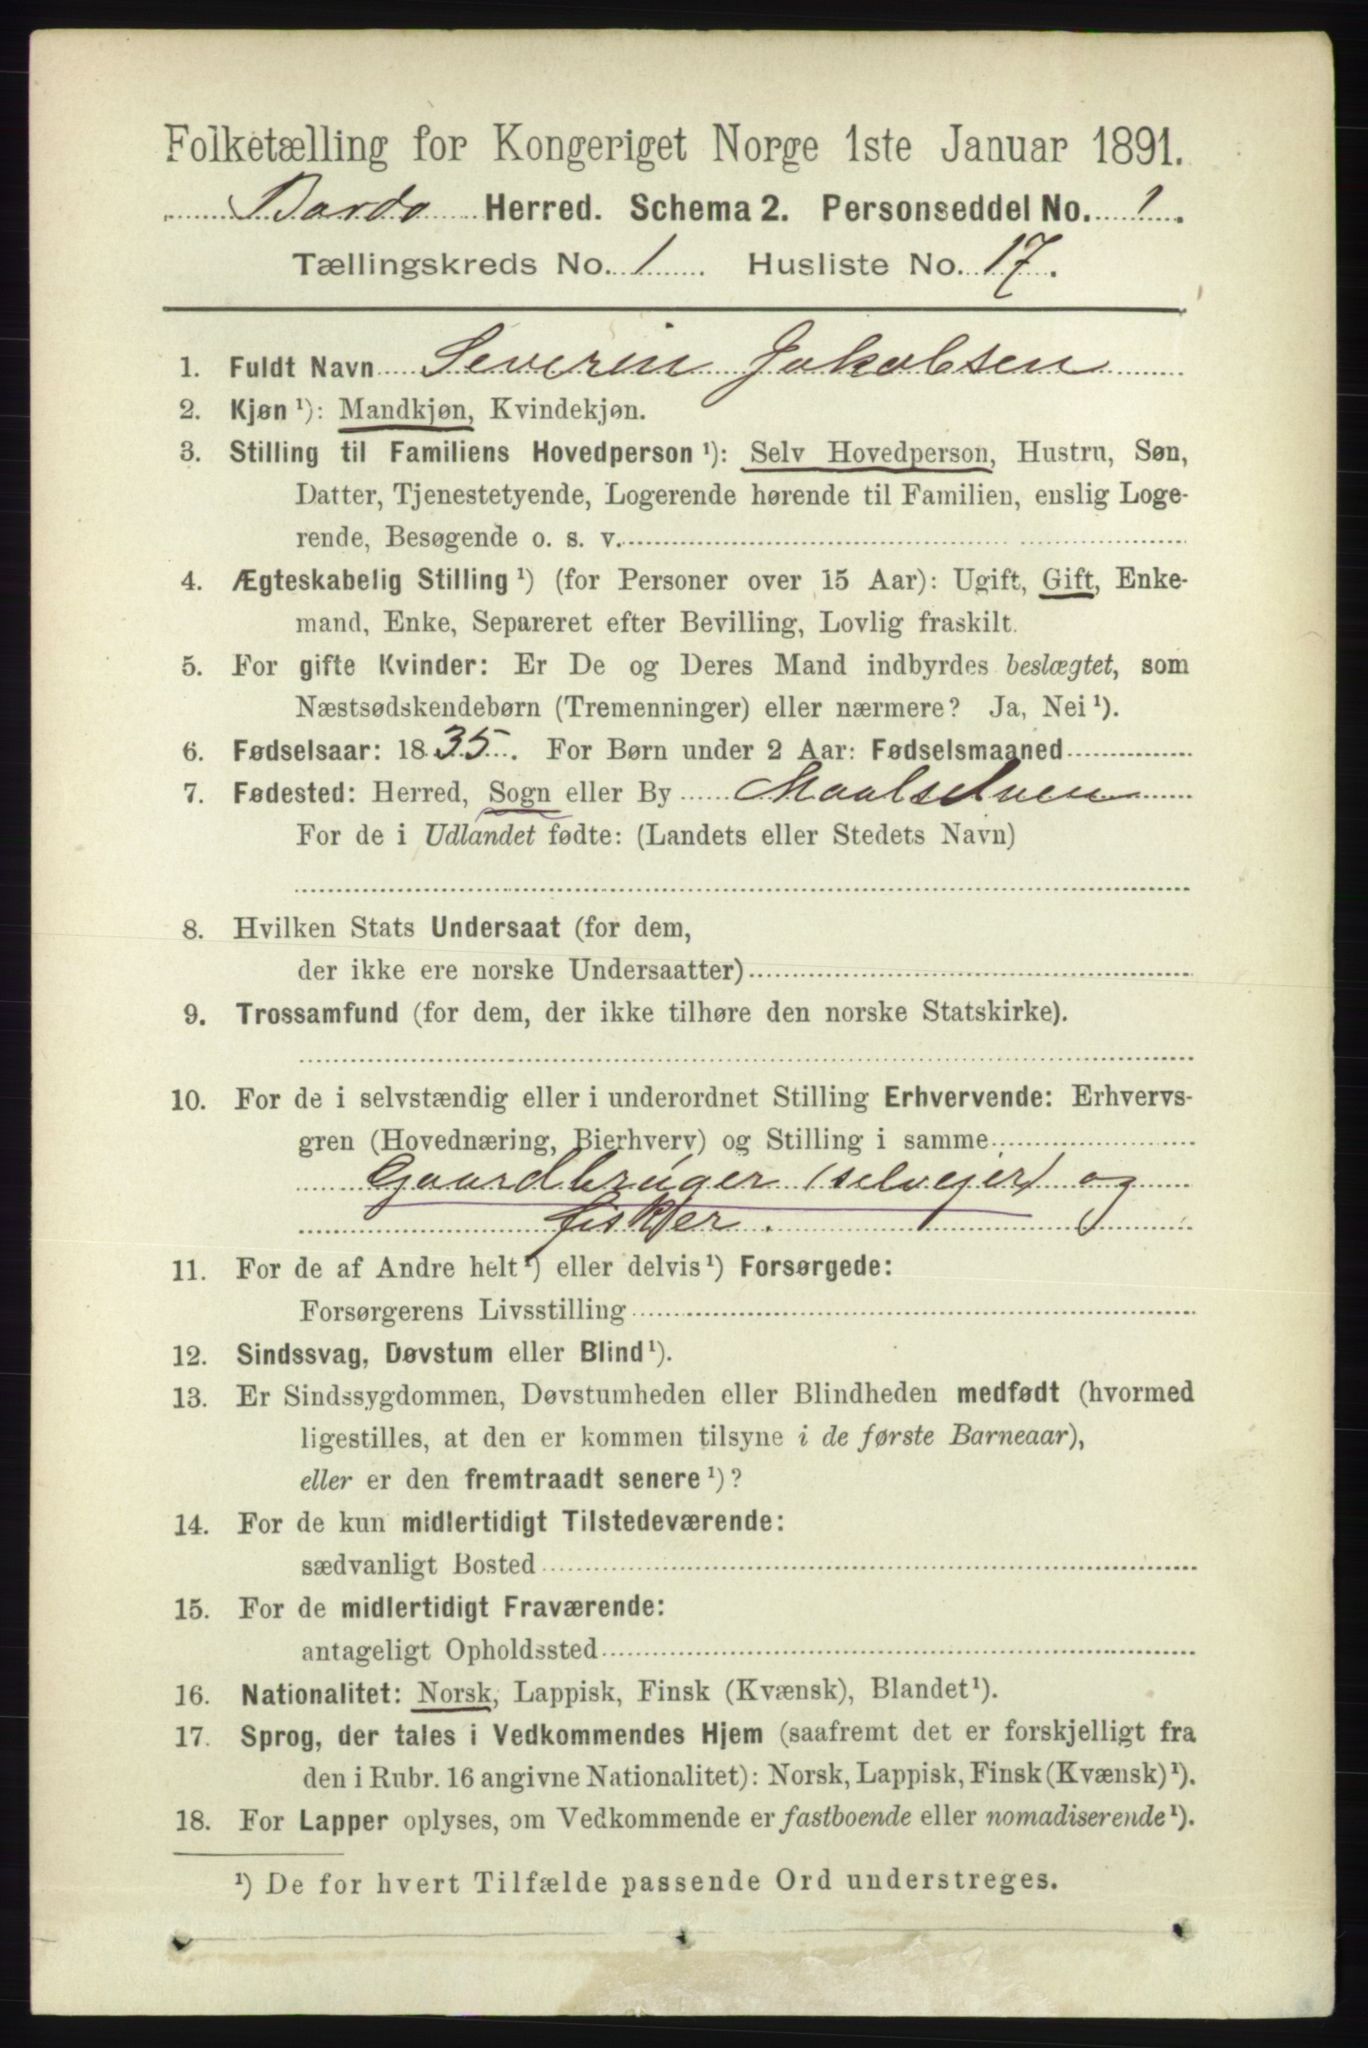 Folketælling for Kongeriget Norge 1ste Januar 1891.
Bardo Herred. Schema 2. Personseddel No. 1.
Tællingskreds No. 1 Husliste No. 17.
1. Fuldt Navn Severin Jakobsen
2. Kjøn ¹): Mandkjøn, Kvindekjøn.
3. Stilling til Familiens Hovedperson ¹): Selv Hovedperson, Hustru, Søn,
Datter, Tjenestetyende, Logerende hørende til Familien, enslig Loge-
rende, Besøgende o. s. v.
4. Ægteskabelig Stilling ¹) (for Personer over 15 Aar): Ugift, Gift, Enke-
mand, Enke, Separeret efter Bevilling, Lovlig fraskilt.
5. For gifte Kvinder: Er De og Deres Mand indbyrdes beslægtet, som
Næstsødskendebørn (Tremenninger) eller nærmere? Ja, Nei ¹).
6. Fødselsaar: 1835. For Børn under 2 Aar: Fødselsmaaned
7. Fødested: Herred, Sogn eller By Maalselven
For de i Udlandet fødte: (Landets eller Stedets Navn)
8. Hvilken Stats Undersaat (for dem,
der ikke ere norske Undersaatter)
9. Trossamfund (for dem, der ikke tilhøre den norske Statskirke).
10. For de i selvstændig eller i underordnet Stilling Erhvervende: Erhvervs-
gren (Hovednæring, Bierhverv) og Stilling i samme
Gaardbruger (selvejer) og
fisker.
11. For de af Andre helt ¹) eller delvis ¹) Forsørgede:
Forsørgerens Livsstilling
12. Sindssvag, Døvstum eller Blind ¹).
13. Er Sindssygdommen, Døvstumheden eller Blindheden medfødt (hvormed
ligestilles, at den er kommen tilsyne i de første Barneaar),
eller er den fremtraadt senere ¹)?
14. For de kun midlertidigt Tilstedeværende:
sædvanligt Bosted
15. For de midlertidigt Fraværende:
antageligt Opholdssted
16. Nationalitet: Norsk, Lappisk, Finsk (Kvænsk), Blandet ¹).
17. Sprog, der tales i Vedkommendes Hjem (saafremt det er forskjelligt fra
den i Rubr. 16 angivne Nationalitet): Norsk, Lappisk, Finsk (Kvænsk) ¹).
18. For Lapper oplyses, om Vedkommende er fastboende eller nomadiserende ¹).
¹) De for hvert Tilfælde passende Ord understreges.